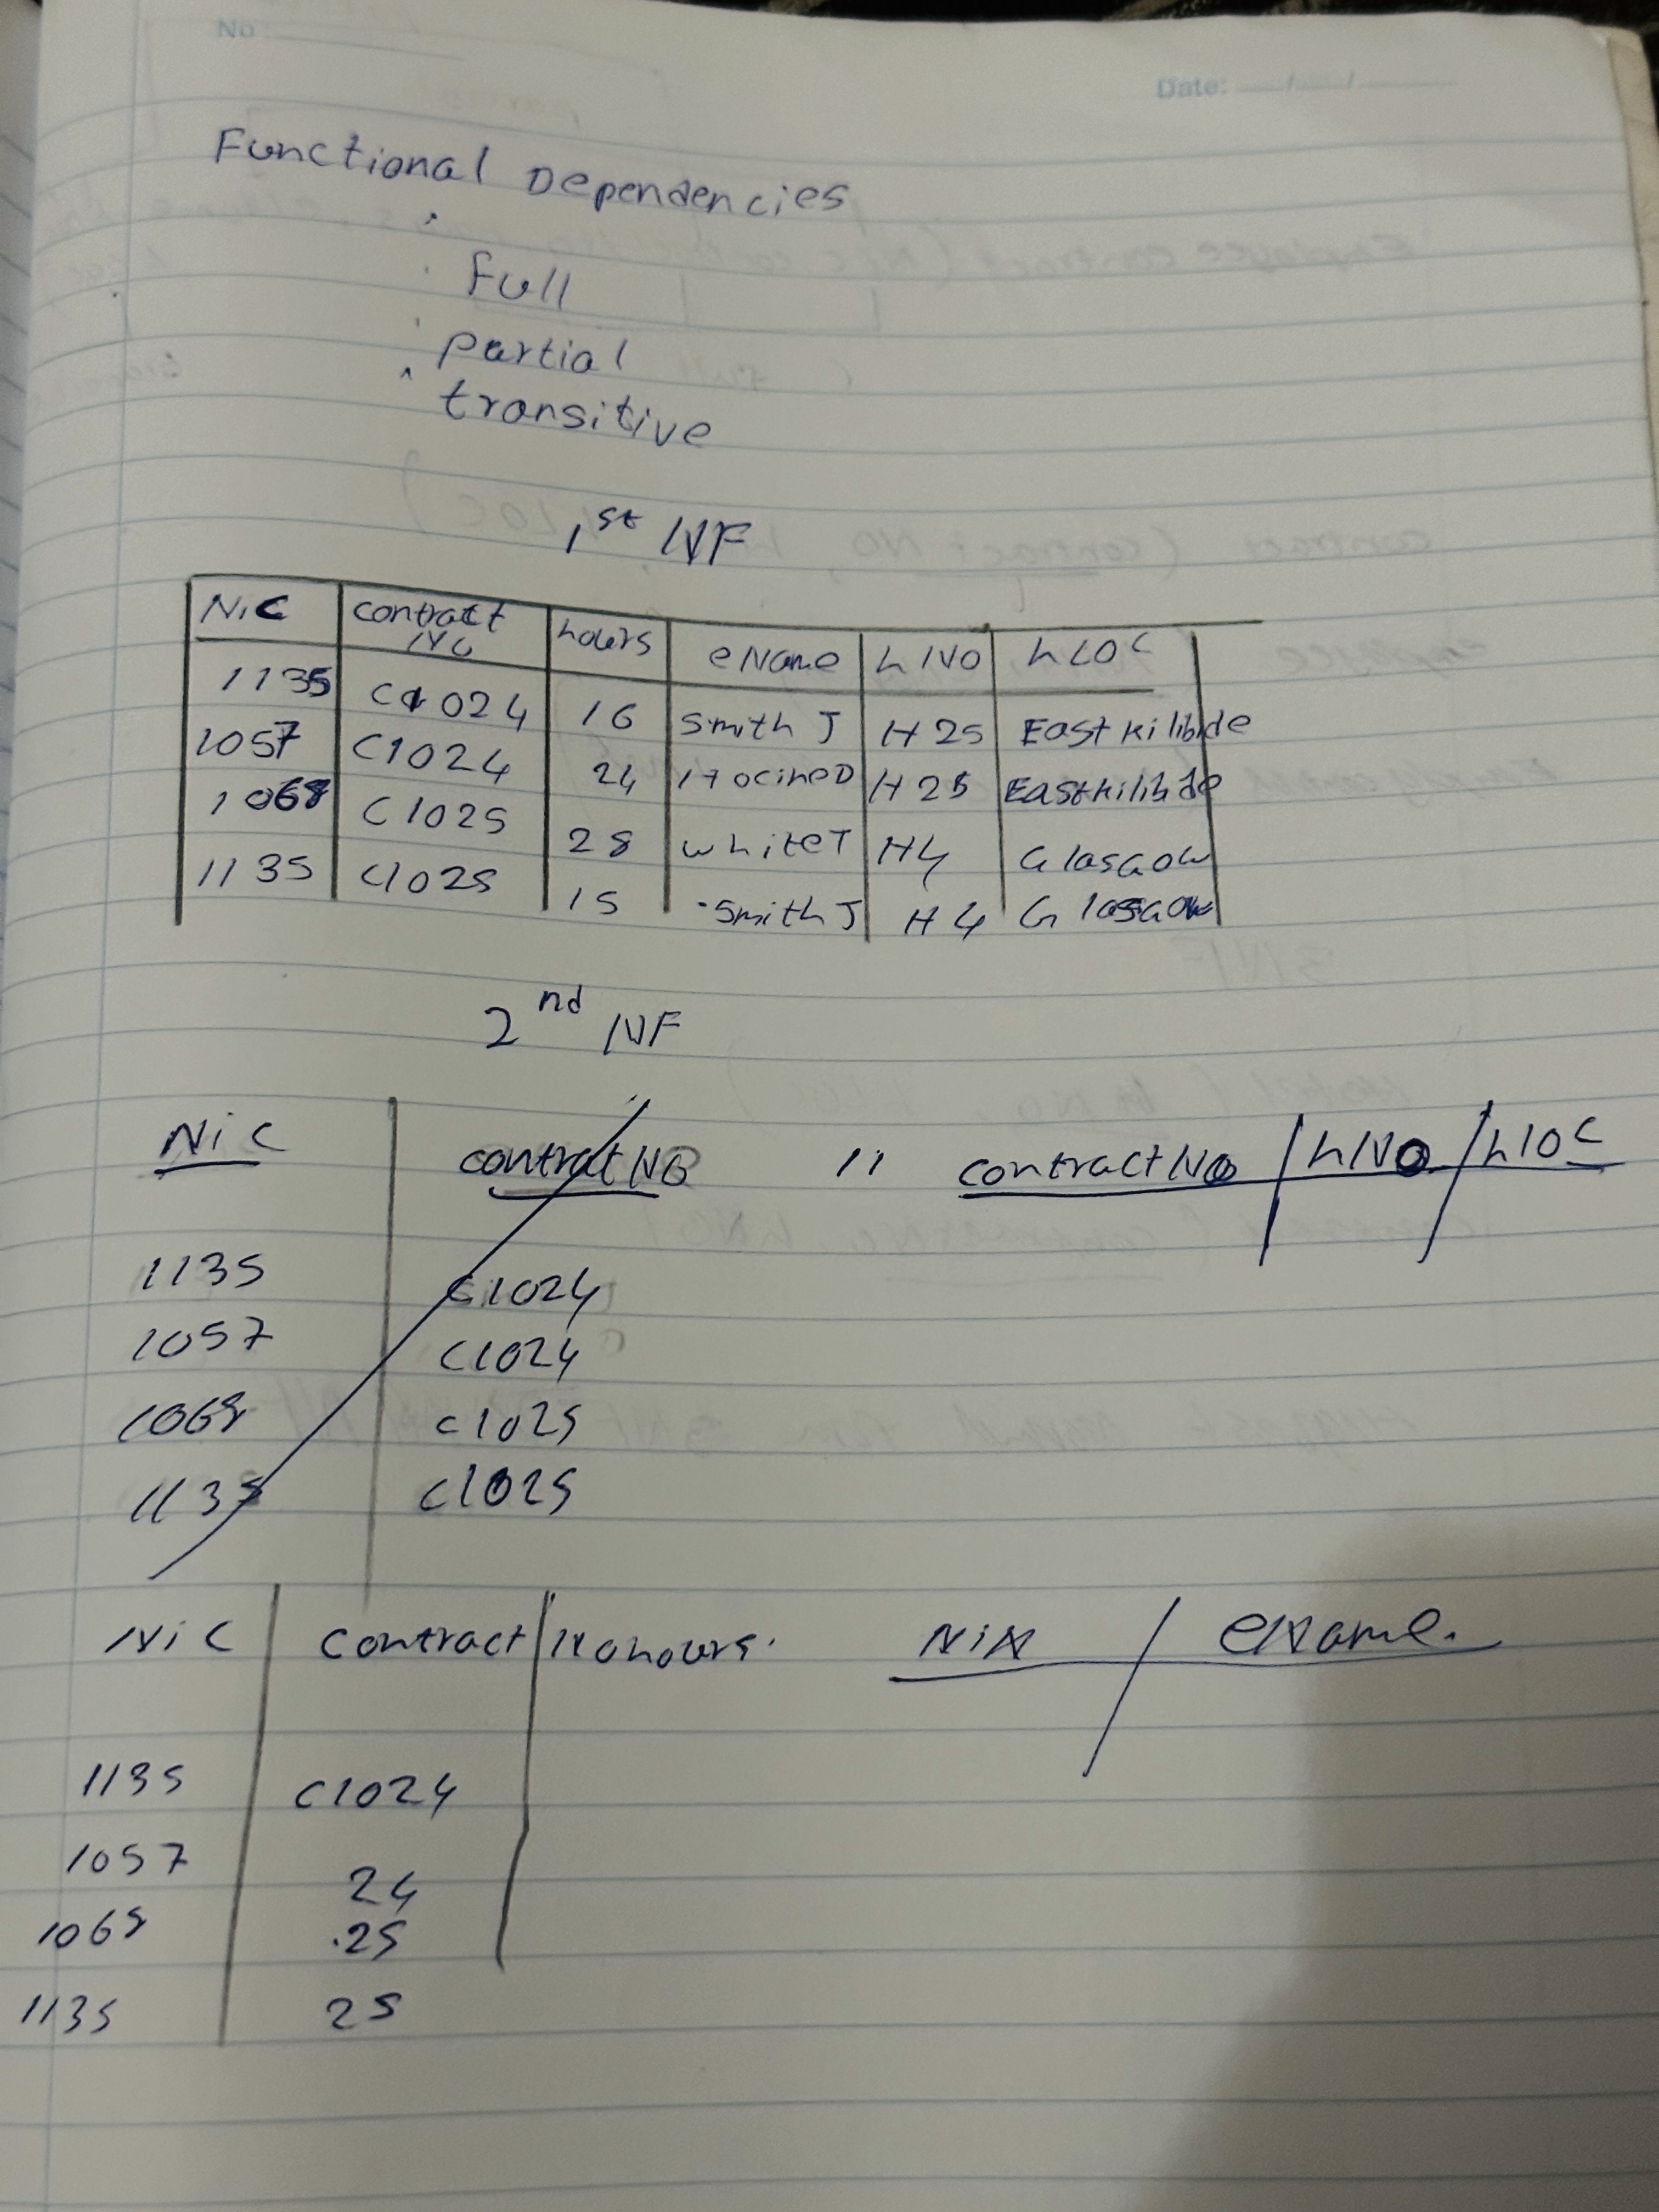 No
Date:
Functional Dependencies
Full
partial
transitive
1st NF
NiC contract No hours eName hNo hLOC
1135 C1024 16 Smith J H25 East Kilibde
1057 C1024 24 HocineD H25 EastKilibde
1068 C1025 28 whiteT H4 Glasgow
1135 C1025 15 SmithJ H4 Glasgow
2nd NF
NiC contractNo 11 contractNo / hNo / hloc
1135 C1024
1057 C1024
1068 C1025
1135 C1025
NiC contract Nohours. NiN / eName.
1135 C1024
1057 24
1068 25
1135 25